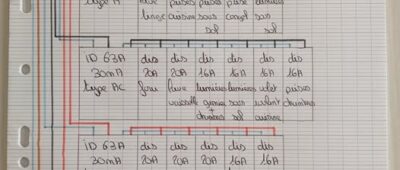 type A lave prises prises prise lumières
linge cuisine sous congel sous
sol sol
ID 63A dis dis dis dis dis dis
30mA 20A 20A 16A 16A 16A 16A
type AC four lave lumières lumières volet prises
vaisselle sous volant chambres
+ sol cuisine
chambres
ID 63A dis dis dis dis dis
30mA 20A 20A 20A 16A 16A